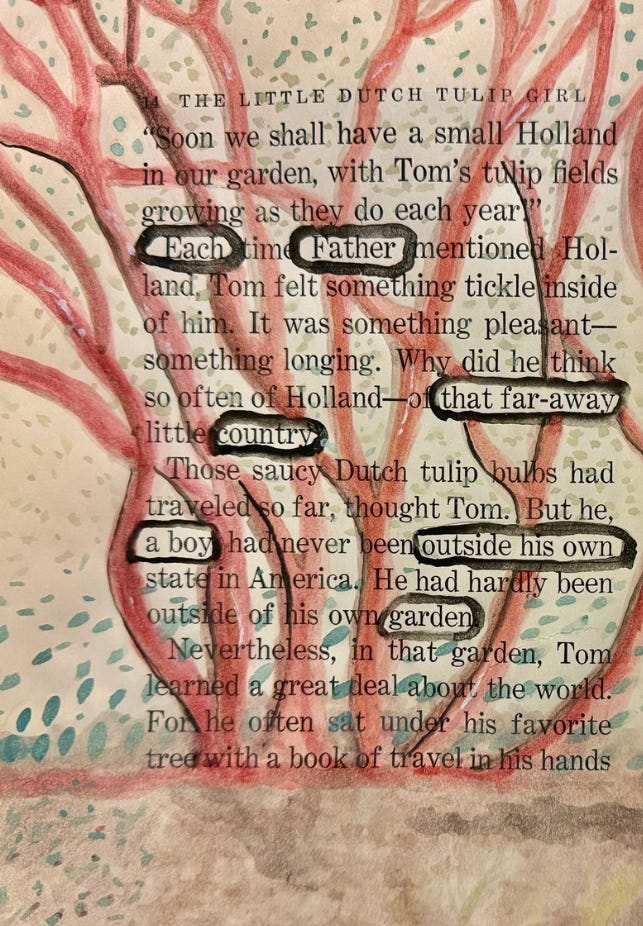 14 THE LITTLE DUTCH TULIP GIRL
“Soon we shall have a small Holland
in our garden, with Tom’s tulip fields
growing as they do each year.”
Each time Father mentioned Hol-
land, Tom felt something tickle inside
of him. It was something pleasant—
something longing. Why did he think
so often of Holland—of that far-away
little country.
Those saucy Dutch tulip bulbs had
traveled so far, thought Tom. But he,
a boy had never been outside his own
state in America. He had hardly been
outside of his own garden.
Nevertheless, in that garden, Tom
learned a great deal about the world.
For he often sat under his favorite
tree with a book of travel in his hands